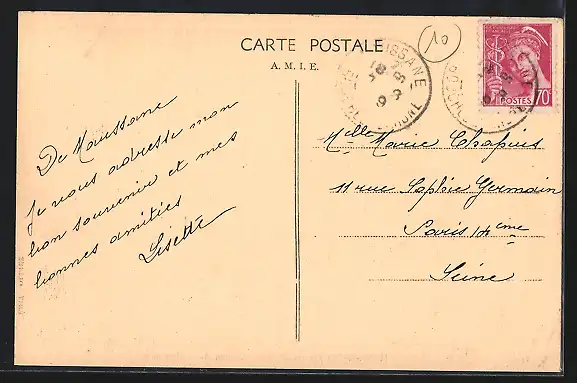 CARTE POSTALE
A. M. I. E.
10
POSTES 70
De Maussane
Je vous adresse mon
bon souvenir et mes
bonnes amitiés
Lisette
Mlle Marie Chapuis
11 rue Sophie Germain
Paris 14eme
Seine